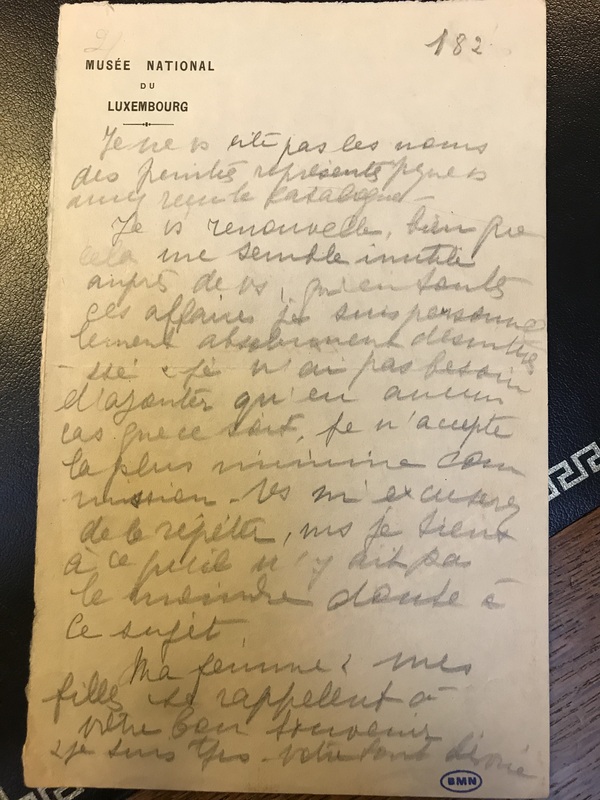 182
MUSÉE NATIONAL
DU
LUXEMBOURG
Je ne vs cite pas les noms
des peintres représentés pque vs
avez reçu le catalogue
Je vs renouvelle, bien que
cela me semble inutile
auprès de vs, qu'en toutes
ces affaires je suis personnel
lement absolument désintéres
sé & je n'ai pas besoin
d'ajouter qu'en aucun
cas que ce soit, je n'accepte
la plus minime com
mission. Vs m'excuserez
de le répéter, ms je tiens
à ce qu'il n'y ait pas
le moindre doute à
ce sujet
Ma femme & mes
filles se rappellent à
votre bon souvenir
& je suis tjrs votre tout dévoué
BMN